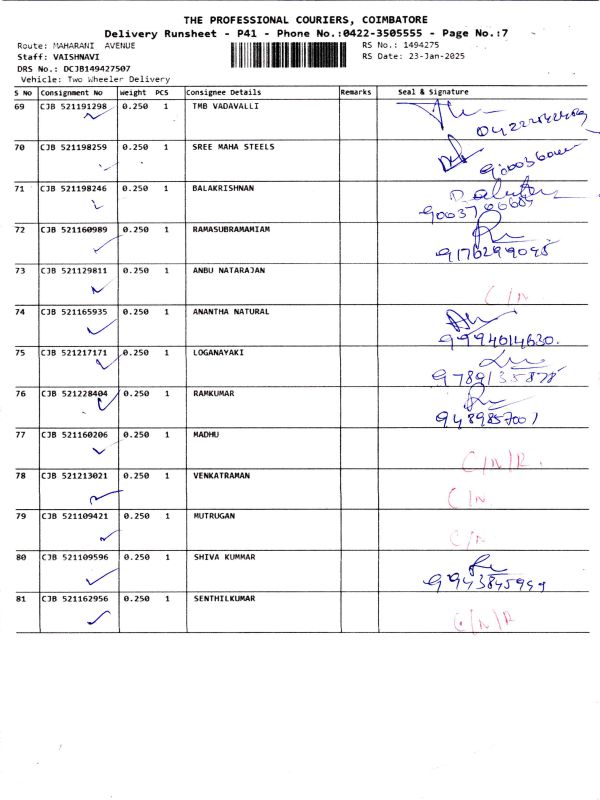 THE PROFESSIONAL COURIERS, COIMBATORE
Delivery Runsheet - P41 - Phone No.:0422-3505555 - Page No.:7
Route: MAHARANI AVENUE RS No.: 1494275
Staff: VAISHNAVI RS Date: 23-Jan-2025
DRS No.: DCJB149427507
Vehicle: Two Wheeler Delivery
S No Consignment No Weight PCS Consignee Details Remarks Seal & Signature
69 CJB 521191298 0.250 1 TMB VADAVALLI
70 CJB 521198259 0.250 1 SREE MAHA STEELS
71 CJB 521198246 0.250 1 BALAKRISHNAN
72 CJB 521160989 0.250 1 RAMASUBRAMAMIAM
9176299095
73 CJB 521129811 0.250 1 ANBU NATARAJAN
C/N
74 CJB 521165935 0.250 1 ANANTHA NATURAL
9994014630.
75 CJB 521217171 0.250 1 LOGANAYAKI
9789135878
76 CJB 521228404 0.250 1 RAMKUMAR
9489857001
77 CJB 521160206 0.250 1 MADHU
C/N/R.
78 CJB 521213021 0.250 1 VENKATRAMAN
C/N.
79 CJB 521109421 0.250 1 MUTRUGAN
C/N
80 CJB 521109596 0.250 1 SHIVA KUMMAR
81 CJB 521162956 0.250 1 SENTHILKUMAR
C/N/R